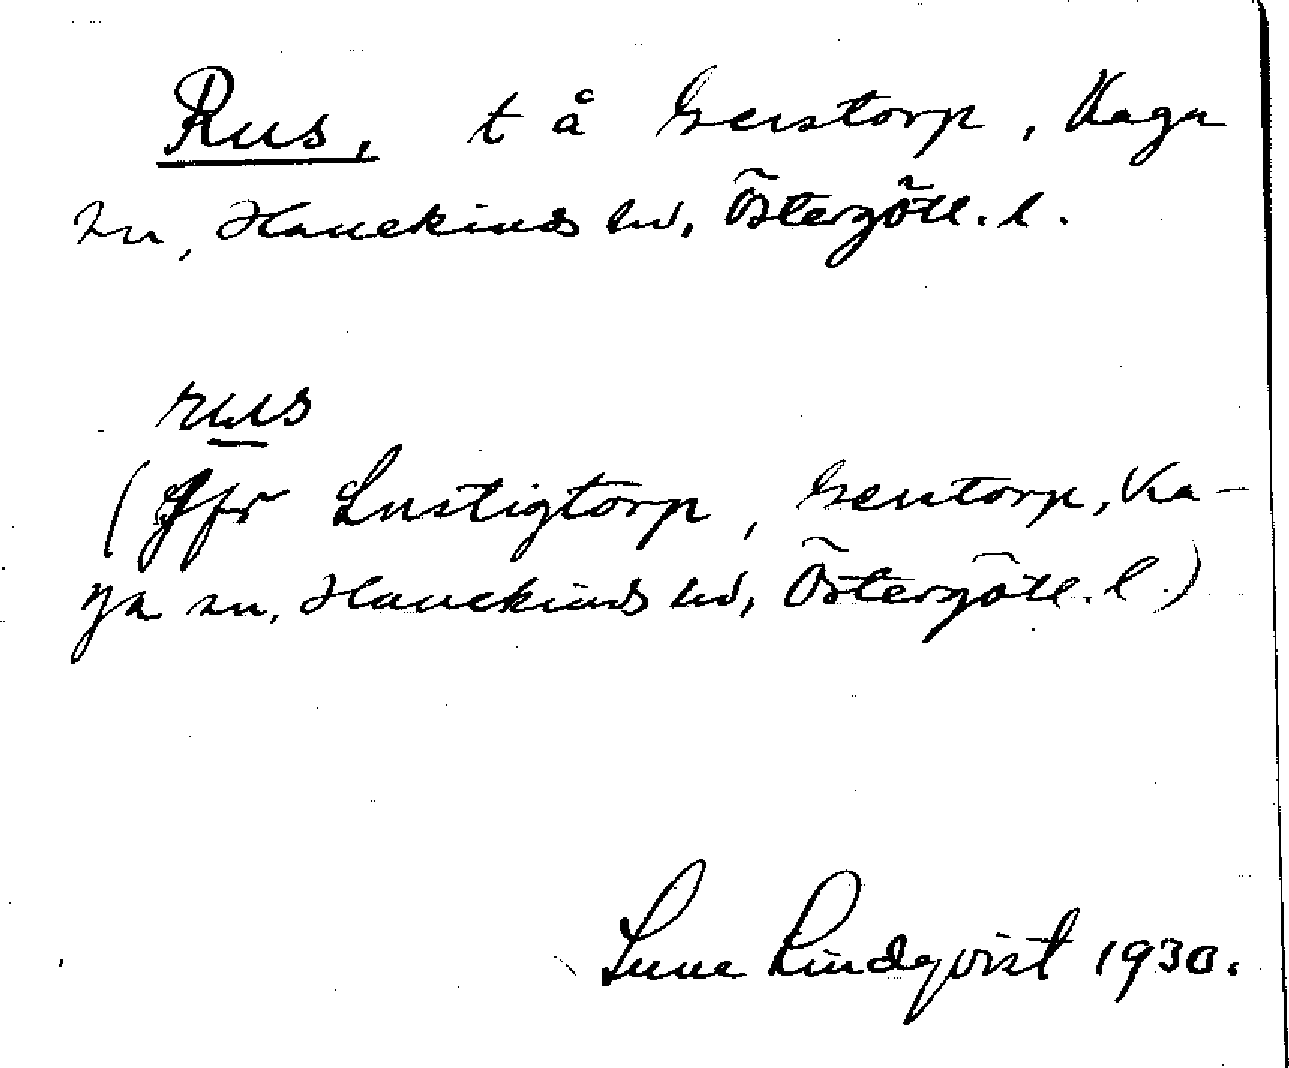 Rus, t å Gerstorp, Kaga
sn, Hanekinds hd, Östergötl. l.
rus
(Jfr Lustigtorp, Gerstorp, Ka-
ga sn, Hanekinds hd, Östergötl. l.)
Sune Lindqvist 1930.